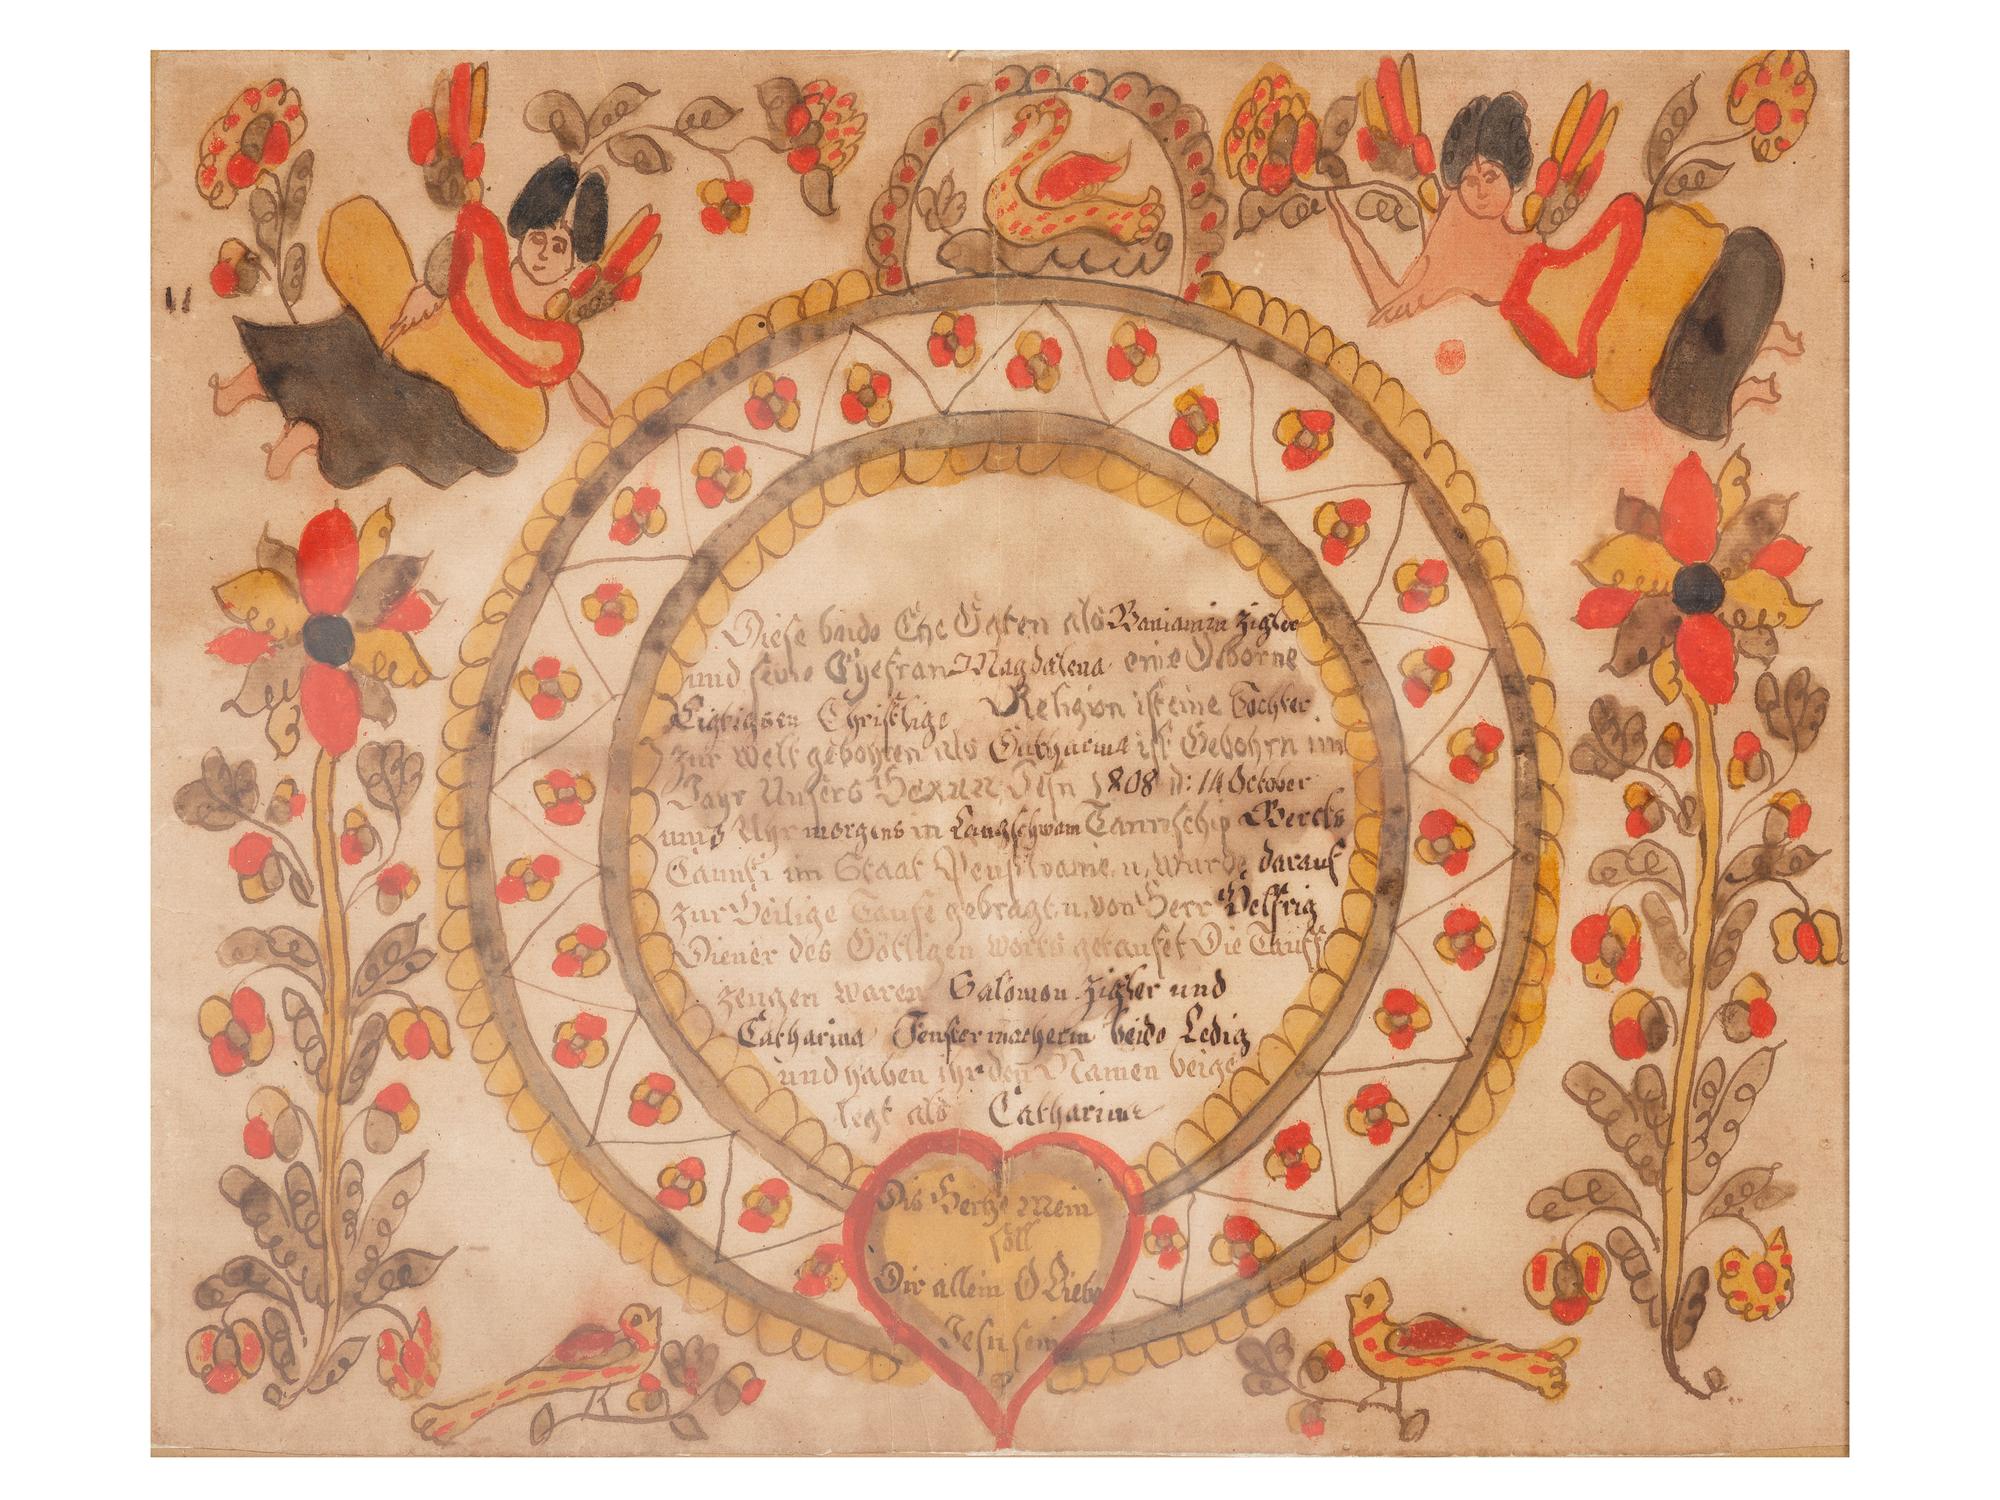 Diese beide Ehe Gaten als Baniamin Zigler
und seine Ehefrau Magdalena eine Geborne
Christlige Religion ist eine Tochter
zur welt gebohren als Catharina ist Gebohrn im
Jahr Unsers Herrn Jesu 1808 d: 14 October
um Uhr morgens in Langschwam Taunschip Bercks
Caunti im Staat Pensilvanie, u, wurde darauf
zur Heilige Taufe gebragt, u, von Herr Helfrig
Diener des Götligen worts getaufet Die Tauff
zeugen waren Salomon Zigler und
Catharina Fenstermacherin beide Ledig
und haben ihr den Namen beige
legt als Catharina
Dis Hertze Mein
soll
Dir allein O Liebe
Jesu sein